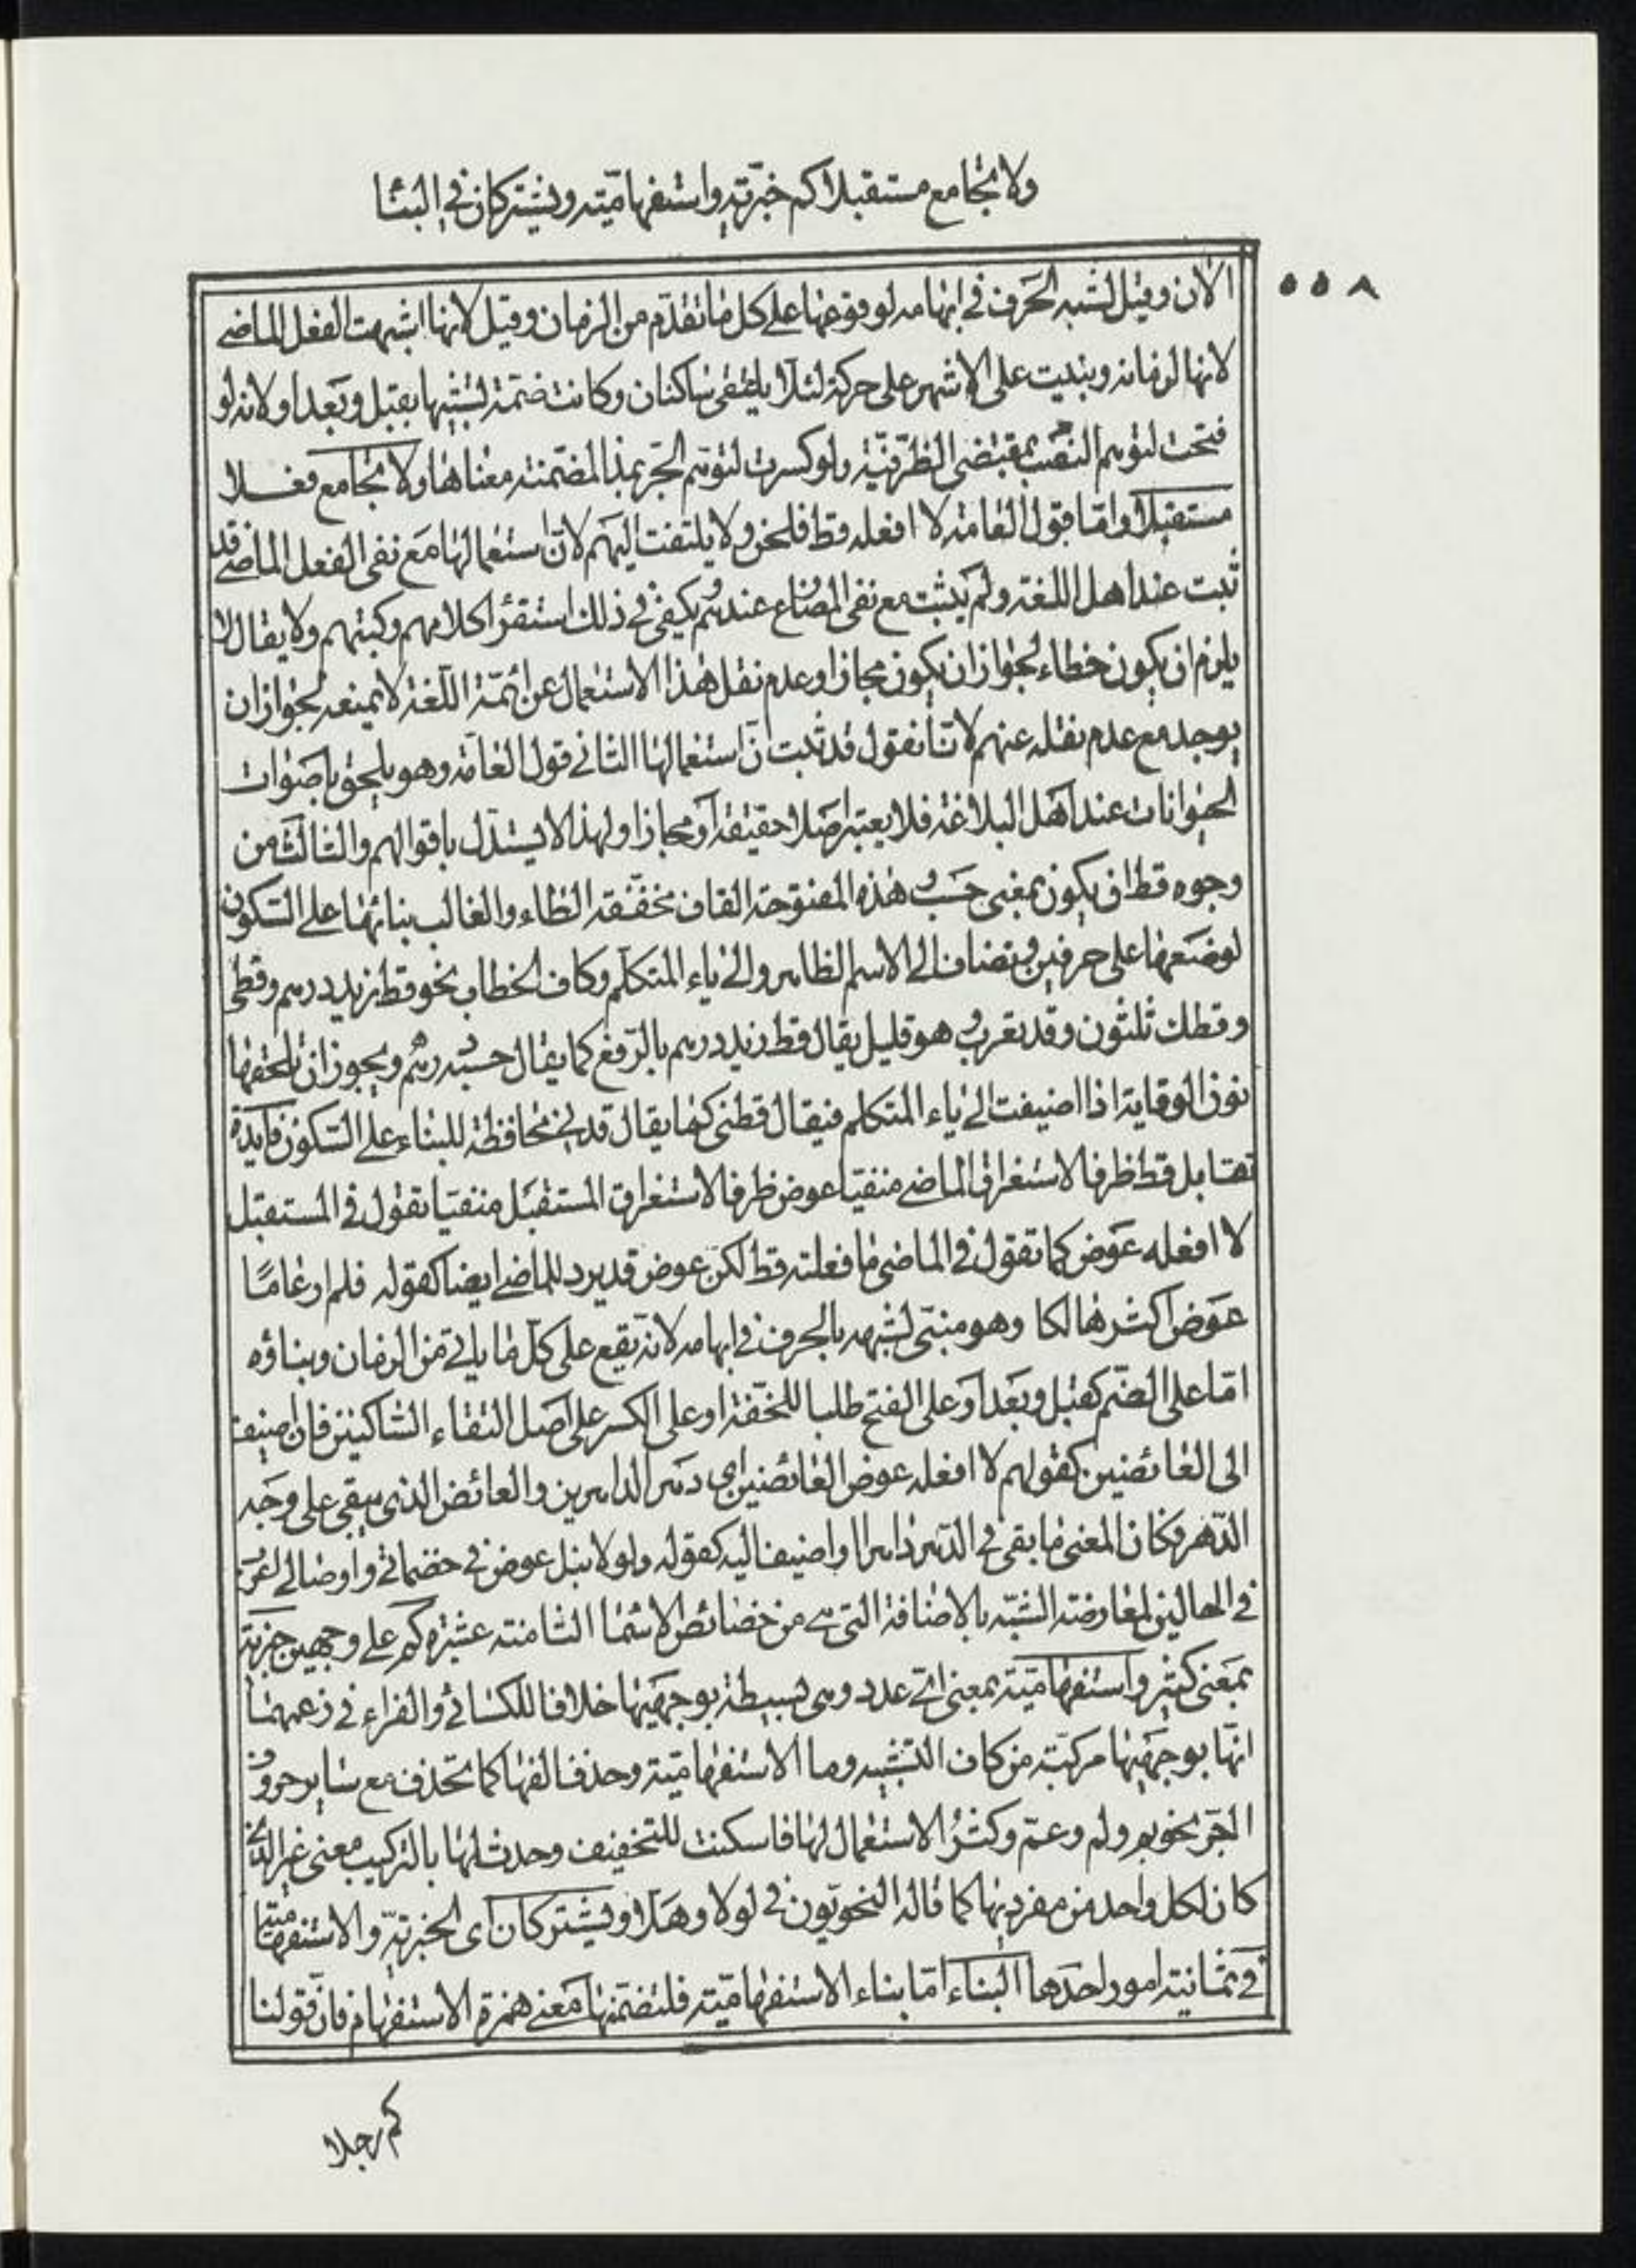 ولا تجامع مستقبلا كم خبرية واستفهامية ويشتركان في البناء
٥٥٨
الان وقيل لشبه الحرف في ابهامه لوقوعها على كل ما تقدم من الزمان وقيل لانها اشبهت الفعل الماضي
لانها لزمانه وبنيت على الاشهر على حركة لئلا يلتقي ساكنان وكانت ضمة لشبهها بقبل وبعد او لانه لو
فتحت لتوهم النصب بمقتضى الظرفية ولو كسرت لتوهم الجر بمذ المضمنة معناها ولا تجامع فعلا
مستقبلا واما قول العامة لا افعله قط فلحن ولا يلتفت اليهم لان استعمالها مع نفي الفعل الماضي قد
ثبت عند اهل اللغة ولم يثبت مع نفي المضارع عندهم يكفي في ذلك استقراء كلامهم وكتبهم ولا يقال لا
يلزم ان يكون خطاء لجواز ان يكون مجازا وعدم نقل هذا الاستعمال عن ائمة اللغة لا يمنعه لجواز ان
يوجد مع عدم نقله عنهم لانا نقول قد ثبت ان استعمالها الثاني قول العامة وهو يلحق باصوات
الحيوانات عند اهل البلاغة فلا يعتبر اصلا حقيقة او مجازا ولهذا لا يستدل باقوالهم والثالث من
وجوه قط ان يكون بمعنى حسب وهذه المفتوحة القاف مخففة الطاء والغالب بنائها على السكون
لوضعها على حرفين وتضاف الى الاسم الظاهر والى ياء المتكلم وكاف الخطاب نحو قط زيد درهم وقطي
وقطك ثلثون وقد يعرب وهو قليل يقال قط زيد درهم بالرفع كما يقال حسبه درهم ويجوز ان تلحقها
نون الوقاية اذا اضيفت الى ياء المتكلم فيقال قطني كما يقال قدني محافظة للبناء على السكون فايدة
تقابل قط ظرفا لاستغراق الماضي منفيا عوض ظرفا لاستغراق المستقبل منفيا تقول في المستقبل
لا افعله عوض كما تقول في الماضي ما فعلته قط لكن عوض قد يرد للماضي ايضا كقوله فلم ار عاما
عوض اكثر هالكا وهو مبني لشبهه بالحرف في ابهامه لانه يقع على كل ما ياتي من الزمان وبناؤه
اما على الضم كقبل وبعد او على الفتح طلبا للخفة او على الكسر على اصل التقاء الساكنين فان اضيف
الى العائضين كقولهم لا افعله عوض العائضين اي دهر الداهرين والعائض الذي يبقى على وجه
الدهر فكان المعنى ما بقي في الدهر داهر او اضيف اليه كقوله ولولا نبل عوض في حضماتي واوصالي اعرب
في الحالين لمعارضة الشبه بالاضافة التي هي من خصائص الاسماء الثامنة عشرة كم على وجهين خبرية
بمعنى كثير واستفهامية بمعنى اي عدد وهي بسيطة بوجهيها خلافا للكسائي والفراء في زعمهما
انها بوجهيها مركبة من كاف التشبيه وما الاستفهامية وحذف الفها كما تحذف مع ساير حروف
الجر نحو بم ولم وعم وكثر الاستعمال لها فاسكنت للتخفيف وحدث لها بالتركيب معنى غير الذي
كان لكل واحد من مفرديها كما قاله النحويون في لولا وهلا ويشتركان اي الخبرية والاستفهامية
في ثمانية امور احدها البناء اما بناء الاستفهامية فلتضمنها معنى همزة الاستفهام فان قولنا
كم رجلا